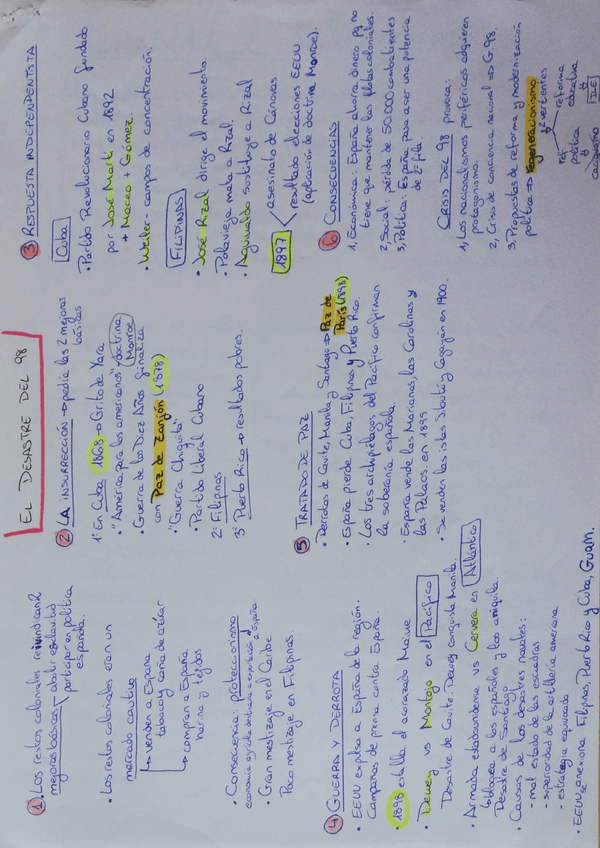 EL DESASTRE DEL 98
① Los restos coloniales reivindican 2
mejoras básicas
abolir esclavitud
participar en política
española.
• Los restos coloniales eran un
mercado cautivo
→ venden a España
tabaco y caña de azúcar
→ compran a España
harina y tejidos
• Consecuencia: proteccionismo
• Gran mestizaje en el Caribe
Poco mestizaje en Filipinas.
② LA INSURRECCIÓN → pedía las 2 mejoras
básicas
1º En Cuba 1868 → Grito de Yara
• "América para los americanos" doctrina
Monroe
• Guerra de los Diez Años finaliza
con Paz de Zanjón (1878)
"Guerra Chiquita"
• Partido Liberal Cubano
2º Filipinas
3º Puerto Rico → resultados pobres.
③ RESPUESTA INDEPENDENTISTA
Cuba
• Partido Revolucionario Cubano fundado
por José Martí en 1892
+ Maceo + Gómez.
• Weiler - campos de concentración.
FILIPINAS
• José Rizal dirige el movimiento.
• Polavieja mata a Rizal.
• Aguinaldo sustituye a Rizal
1897
asesinato de Cánovas
resultado elecciones EEUU
(aplicación de doctrina Monroe).
④ GUERRA Y DERROTA
• EEUU expulsa a España de la región.
Campañas de prensa contra España.
• 1898 estalla el acorazado Maine
• Dewey vs Montojo en el Pacífico
Desastre de Cavite. Dewey conquista Manila.
• Armada estadounidense vs Cervera en Atlántico
bloquea a los españoles y los aniquila.
Desastre de Santiago
• Causas de los desastres navales:
- mal estado de las escuadras
- superioridad de la artillería americana
- estrategia equivocada
• EEUU se anexiona Filipinas, Puerto Rico y Cuba, GUAM.
⑤ TRATADO DE PAZ
• Derrotas de Cavite, Manila y Santiago → Paz de
París (1898)
• España pierde Cuba, Filipinas y Puerto Rico.
• Los tres archipiélagos del Pacífico confirman
la soberanía española
• España vende las Marianas, las Carolinas y
las Palaos, en 1899
• Se venden las islas Sibutú y Cagayán en 1900.
⑥ CONSECUENCIAS
1, Económica: España ahorra dinero pq no
tiene que mantener las flotas coloniales.
2, Social: pérdida de 50 000 combatientes
3, Política: España pasa a ser una potencia
de 2ª fila.
CRISIS DEL 98 provoca:
1, Los nacionalismos periféricos adquieren
protagonismo.
2, Crisis de conciencia nacional → G. 98.
3, Propuestas de reforma y modernización
política → regeneracionismo
2 vertientes
ref. política
caciquismo
reforma
educativa
ILE